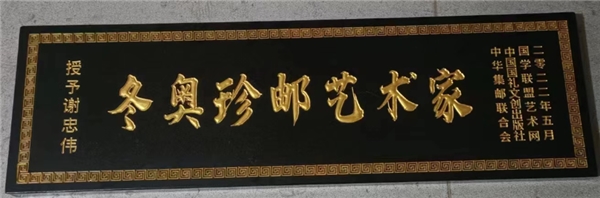 授予谢忠伟
冬奥珍邮艺术家
二零二二年五月
国学联盟艺术网
中国国礼文创出版社
中华集邮联合会